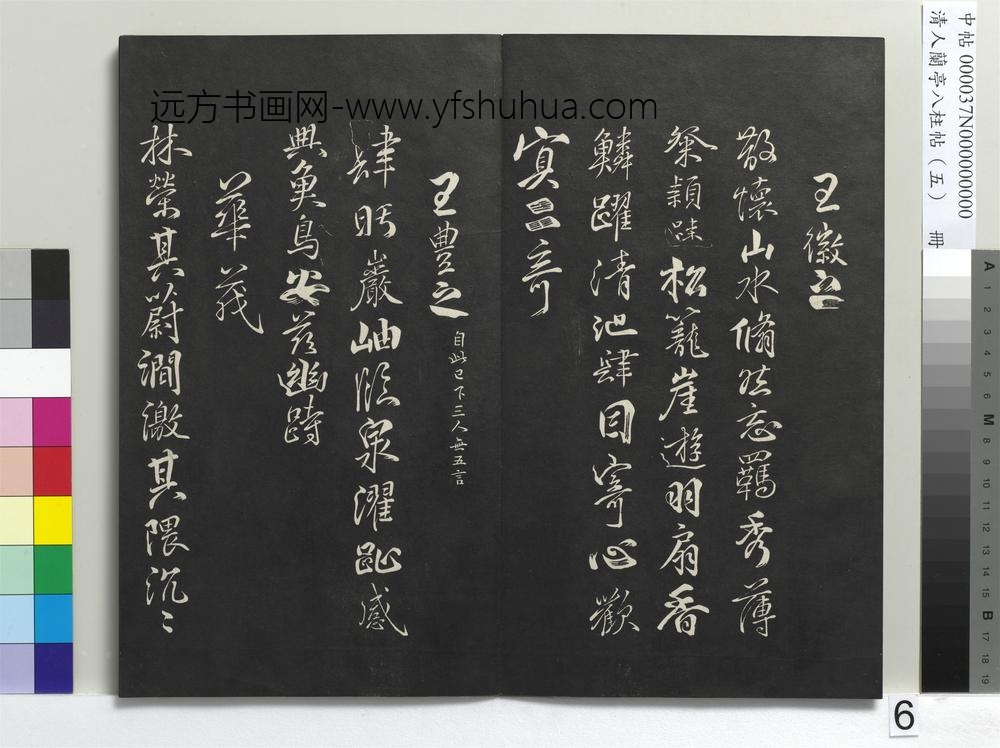 中帖 000037N000000000
清人蘭亭八柱帖（五） 冊
远方书画网-www.yfshuhua.com
王徽之
散懷山水翛然忘羈秀薄
粲穎疎松籠崖遊羽扇香
鱗躍清池肆目寄心歡
寘二奇
王豐之 自此已下三人無五言
肆眄巖岫臨泉濯趾感
興魚鳥安茲幽跱
華茂
林榮其蔚澗激其隈汎〻
6
A 1 2 3 4 5 6 M 8 9 10 11 12 13 14 15 B 17 18 19